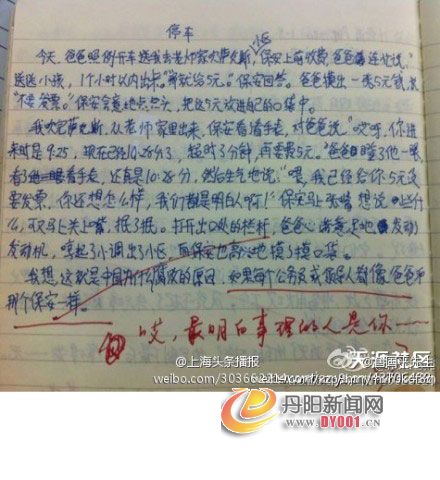 停车
今天,爸爸照例开车送我去老师家吹萨克斯,保安上前收费,爸爸连忙说:"
送送小孩,1个小时以内出来。""那就给5元。"保安回答。爸爸摸出一张5元钱,说
"不要发票。"保安会意地点点头,把这5元放进自己的口袋中。
我吹完萨克斯,从老师家里出来,保安看看手表,对爸爸说:"哎呀,你进
来时是9:25,现在已经10:28分了,超时3分钟,再要5元。"爸爸瞪了他一眼,
看了看手表,还真是10:28分,然后生气地说:"喂,我已经给你5元没
要发票,你还想怎么样,我们都是明白人啊!"保安马上张嘴想说些什
么,又马上关上嘴,抿了抿。打开出口处的栏杆,爸爸心满意足地发动
发动机,哼起了小调出了小区,而保安也高兴地摸了摸口袋。
我想,这就是中国为什么腐败的原因,如果每个公务员或领导人都像爸爸和
那个保安一样。
哎,最明白事理的人是你——
@上海头条播报
weibo.com/3036622
天涯社区
丹阳新闻网
WWW.DY001.CN